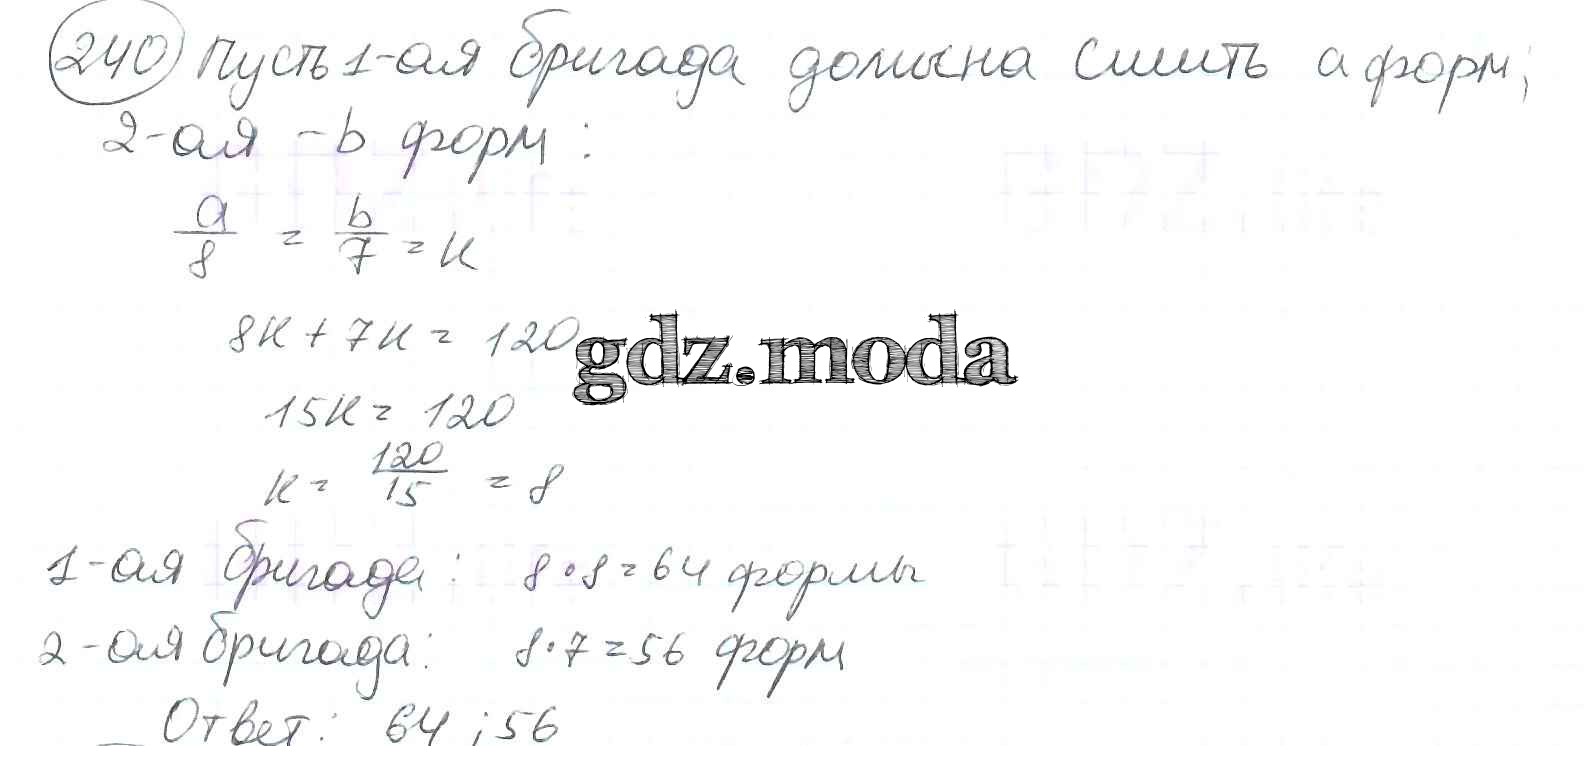 240 Пусть 1-ая бригада должна сшить a форм;
2-ая - b форм:
a/8 = b/7 = к
8к + 7к = 120
gdz.moda
15к = 120
к = 120/15 = 8
1-ая бригада: 8·8=64 формы
2-ая бригада: 8·7=56 форм
Ответ: 64; 56